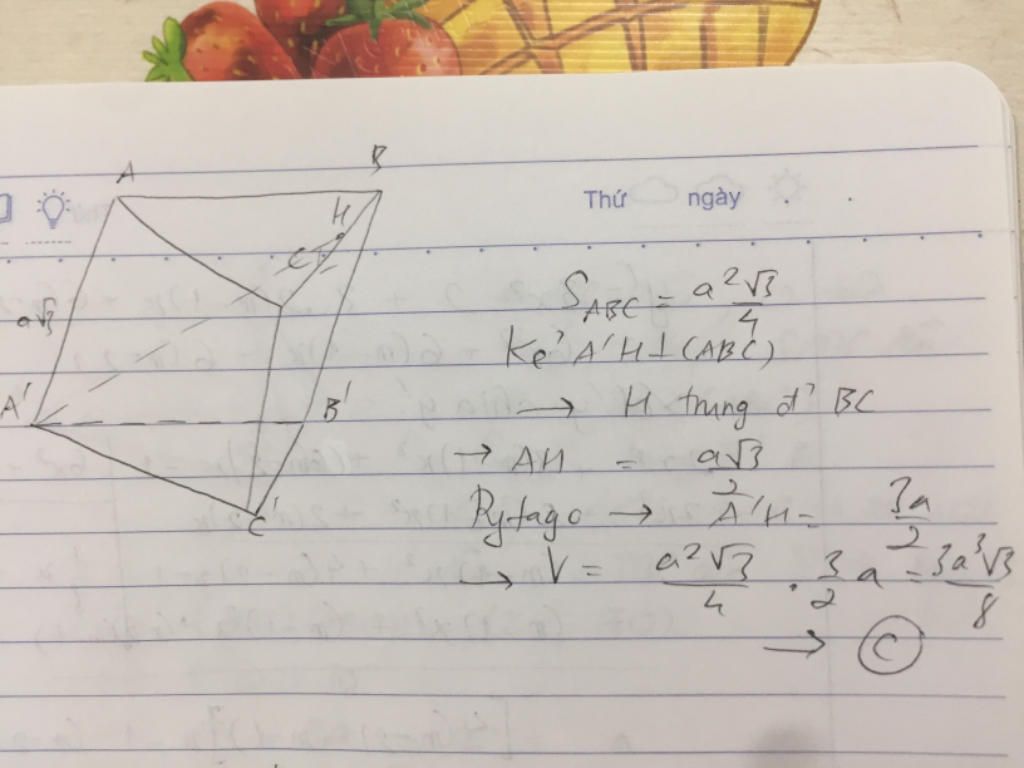 A B
Thứ ngày
H
C
a√3
S_ABC = a²√3/4
Kẻ A'H ⊥ (ABC)
A' B' → H trung đ' BC
→ AH = a√3/2
C' Pytago → A'H = 3a/2
→ V = a²√3/4 · 3/2 a = 3a³√3/8
→ C